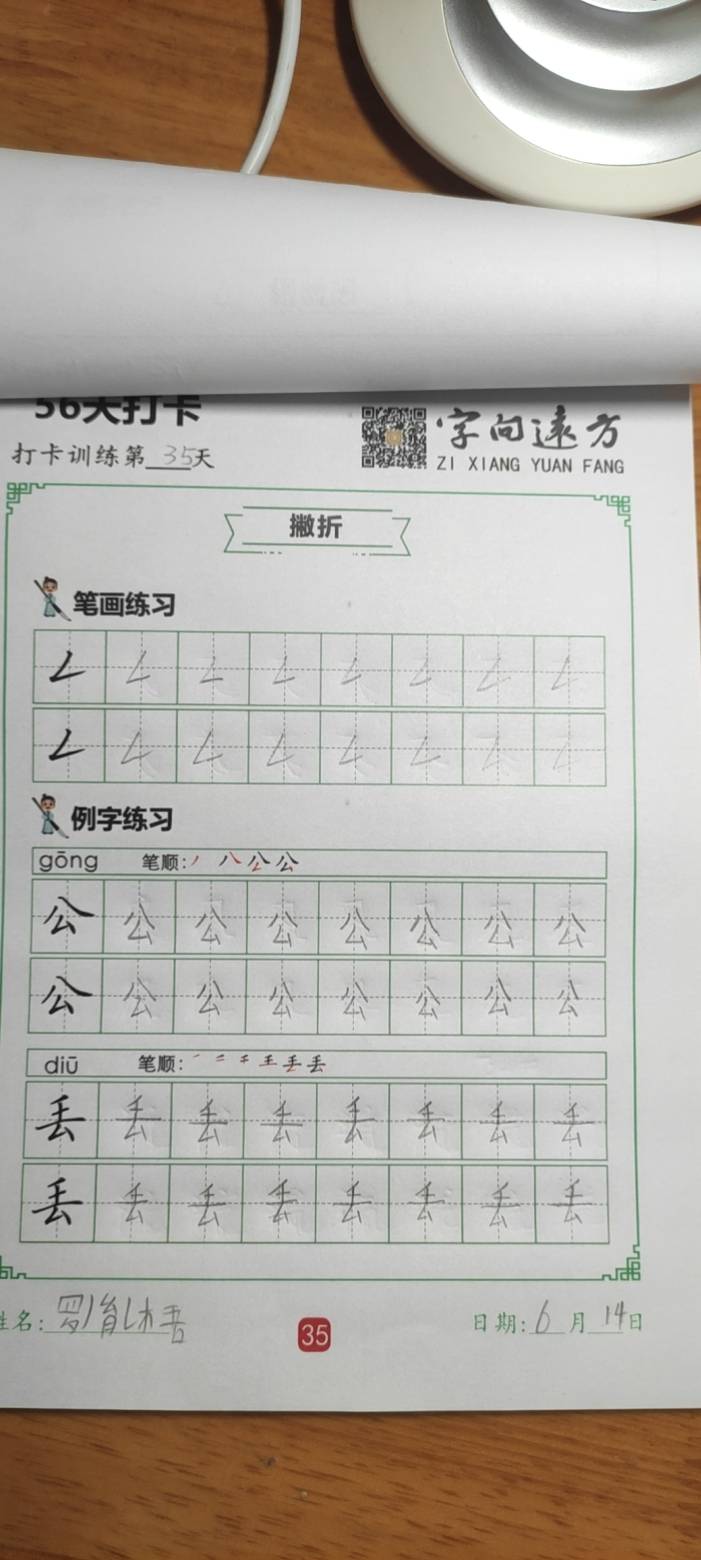 56天打卡
打卡训练第35天
字向远方
ZI XIANG YUAN FANG
撇折
笔画练习
例字练习
gōng 笔顺: 丿 八 公 公
公 公 公 公 公 公 公 公
公 公 公 公 公 公 公 公
diū 笔顺: 一 二 千 王 丢 丢
丢 丢 丢 丢 丢 丢 丢 丢
丢 丢 丢 丢 丢 丢 丢 丢
姓名:罗
35
日期:6月14日